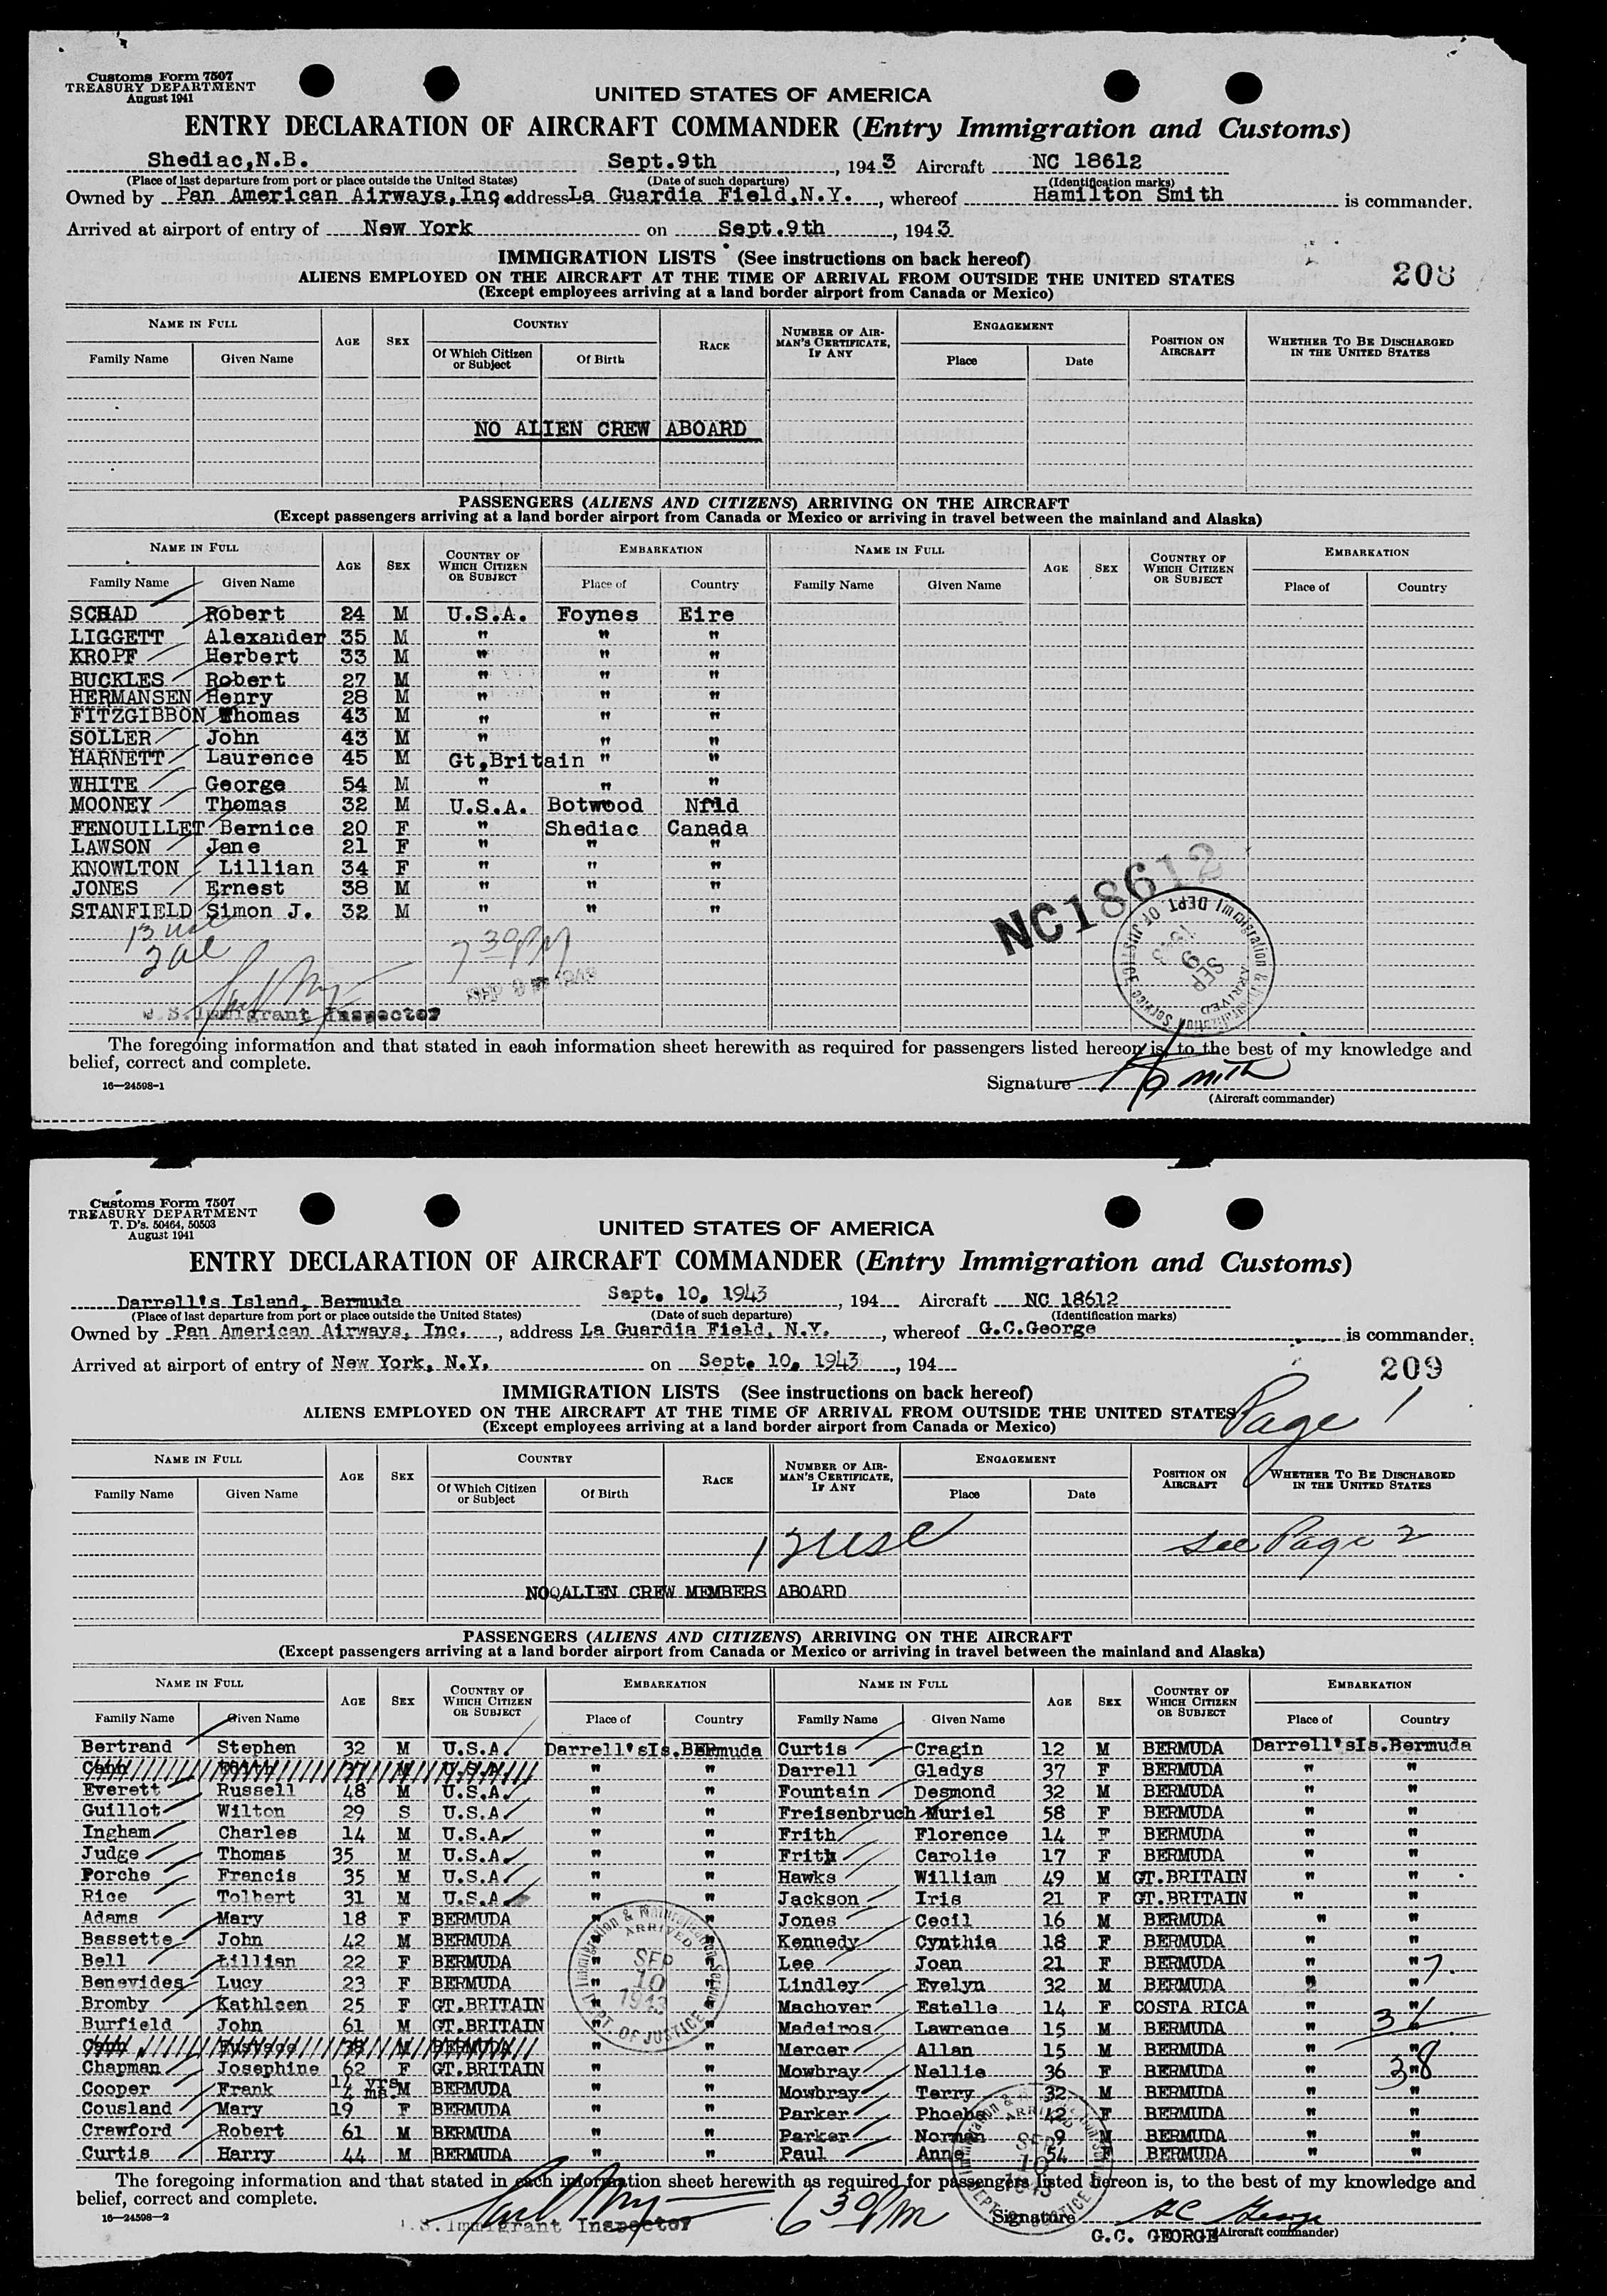 Customs Form 7507
TREASURY DEPARTMENT
August 1941
UNITED STATES OF AMERICA
ENTRY DECLARATION OF AIRCRAFT COMMANDER (Entry Immigration and Customs)
Shediac,N.B. Sept.9th, 1943 Aircraft NC 18612
(Place of last departure from port or place outside the United States) (Date of such departure) (Identification marks)
Owned by Pan American Airways,Inc address La Guardia Field,N.Y., whereof Hamilton Smith is commander.
Arrived at airport of entry of New York on Sept.9th, 1943
IMMIGRATION LISTS (See instructions on back hereof)
208
ALIENS EMPLOYED ON THE AIRCRAFT AT THE TIME OF ARRIVAL FROM OUTSIDE THE UNITED STATES
(Except employees arriving at a land border airport from Canada or Mexico)
NAME IN FULL AGE SEX COUNTRY RACE NUMBER OF AIRMAN'S CERTIFICATE, IF ANY ENGAGEMENT POSITION ON AIRCRAFT WHETHER TO BE DISCHARGED IN THE UNITED STATES
Family Name Given Name Of Which Citizen or Subject Of Birth Place Date
NO ALIEN CREW ABOARD
PASSENGERS (ALIENS AND CITIZENS) ARRIVING ON THE AIRCRAFT
(Except passengers arriving at a land border airport from Canada or Mexico or arriving in travel between the mainland and Alaska)
NAME IN FULL AGE SEX COUNTRY OF WHICH CITIZEN OR SUBJECT EMBARKATION NAME IN FULL AGE SEX COUNTRY OF WHICH CITIZEN OR SUBJECT EMBARKATION
Family Name Given Name Place of Country Family Name Given Name Place of Country
SCHAD Robert 24 M U.S.A. Foynes Eire
LIGGETT Alexander 35 M " " "
KROPF Herbert 33 M " " "
BUCKLES Robert 27 M " " "
HERMANSEN Henry 28 M " " "
FITZGIBBON Thomas 43 M " " "
SOLLER John 43 M " " "
HARNETT Laurence 45 M Gt.Britain " "
WHITE George 54 M " " "
MOONEY Thomas 32 M U.S.A. Botwood Nfld
FENOUILLET Bernice 20 F " Shediac Canada
LAWSON Jane 21 F " " "
KNOWLTON Lillian 34 F " " "
JONES Ernest 38 M " " "
STANFIELD Simon J. 32 M " " "
NC18612
13 usc
2 al
7 30 PM
SEP 9 1943
U.S. Immigrant Inspector
Immigration & Naturalization Service
ARRIVED
SEP 9 1943
DEPT OF JUSTICE
The foregoing information and that stated in each information sheet herewith as required for passengers listed hereon is, to the best of my knowledge and
belief, correct and complete.
16—24598-1
Signature H Smith
(Aircraft commander)
Customs Form 7507
TREASURY DEPARTMENT
T. D's. 50464, 50503
August 1941
UNITED STATES OF AMERICA
ENTRY DECLARATION OF AIRCRAFT COMMANDER (Entry Immigration and Customs)
Darrell's Island, Bermuda Sept. 10, 1943, 194 Aircraft NC 18612
(Place of last departure from port or place outside the United States) (Date of such departure) (Identification marks)
Owned by Pan American Airways, Inc., address La Guardia Field, N.Y., whereof G.C.George is commander.
Arrived at airport of entry of New York, N.Y. on Sept. 10, 1943, 194
209
IMMIGRATION LISTS (See instructions on back hereof)
ALIENS EMPLOYED ON THE AIRCRAFT AT THE TIME OF ARRIVAL FROM OUTSIDE THE UNITED STATES
Page 1
(Except employees arriving at a land border airport from Canada or Mexico)
NAME IN FULL AGE SEX COUNTRY RACE NUMBER OF AIRMAN'S CERTIFICATE, IF ANY ENGAGEMENT POSITION ON AIRCRAFT WHETHER TO BE DISCHARGED IN THE UNITED STATES
Family Name Given Name Of Which Citizen or Subject Of Birth Place Date
see Page 2
NO ALIEN CREW MEMBERS ABOARD
PASSENGERS (ALIENS AND CITIZENS) ARRIVING ON THE AIRCRAFT
(Except passengers arriving at a land border airport from Canada or Mexico or arriving in travel between the mainland and Alaska)
NAME IN FULL AGE SEX COUNTRY OF WHICH CITIZEN OR SUBJECT EMBARKATION NAME IN FULL AGE SEX COUNTRY OF WHICH CITIZEN OR SUBJECT EMBARKATION
Family Name Given Name Place of Country Family Name Given Name Place of Country
Bertrand Stephen 32 M U.S.A. Darrell'sIs.Bermuda Curtis Cragin 12 M BERMUDA Darrell'sIs.Bermuda
U.S.A. " " Darrell Gladys 37 F BERMUDA " "
Everett Russell 48 M U.S.A. " " Fountain Desmond 32 M BERMUDA " "
Guillot Wilton 29 S U.S.A. " " Freisenbruch Muriel 58 F BERMUDA " "
Ingham Charles 14 M U.S.A. " " Frith Florence 14 F BERMUDA " "
Judge Thomas 35 M U.S.A. " " Frith Carolie 17 F BERMUDA " "
Porche Francis 35 M U.S.A. " " Hawks William 49 M GT.BRITAIN " "
Rice Tolbert 31 M U.S.A. " " Jackson Iris 21 F GT.BRITAIN " "
Adams Mary 18 F BERMUDA " " Jones Cecil 16 M BERMUDA " "
Bassette John 42 M BERMUDA " " Kennedy Cynthia 18 F BERMUDA " "
Bell Lillian 22 F BERMUDA " " Lee Joan 21 F BERMUDA " "
Benevides Lucy 23 F BERMUDA " " Lindley Evelyn 32 M BERMUDA " "
Bromby Kathleen 25 F GT.BRITAIN " " Machover Estelle 14 F COSTA RICA " "
Burfield John 61 M GT.BRITAIN " " Medeiros Lawrence 15 M BERMUDA " "
BERMUDA " " Mercer Allan 15 M BERMUDA " "
Chapman Josephine 62 F GT.BRITAIN " " Mowbray Nellie 36 F BERMUDA " "
Cooper Frank M BERMUDA " " Mowbray Terry 32 M BERMUDA " "
Cousland Mary 19 F BERMUDA " " Parker Phoebe 12 F BERMUDA " "
Crawford Robert 61 M BERMUDA " " Parker Norman 9 M BERMUDA " "
Curtis Harry 44 M BERMUDA " " Paul Anne 54 F BERMUDA " "
7
31
38
Immigration & Naturalization Service
ARRIVED
SEP 10 1943
DEPT OF JUSTICE
ARRIVED
SEP 10 1943
DEPT OF JUSTICE
The foregoing information and that stated in each information sheet herewith as required for passengers listed hereon is, to the best of my knowledge and
belief, correct and complete.
16—24598-2
U.S. Immigrant Inspector
6 30 PM
Signature GC George
G.C. GEORGE (Aircraft commander)